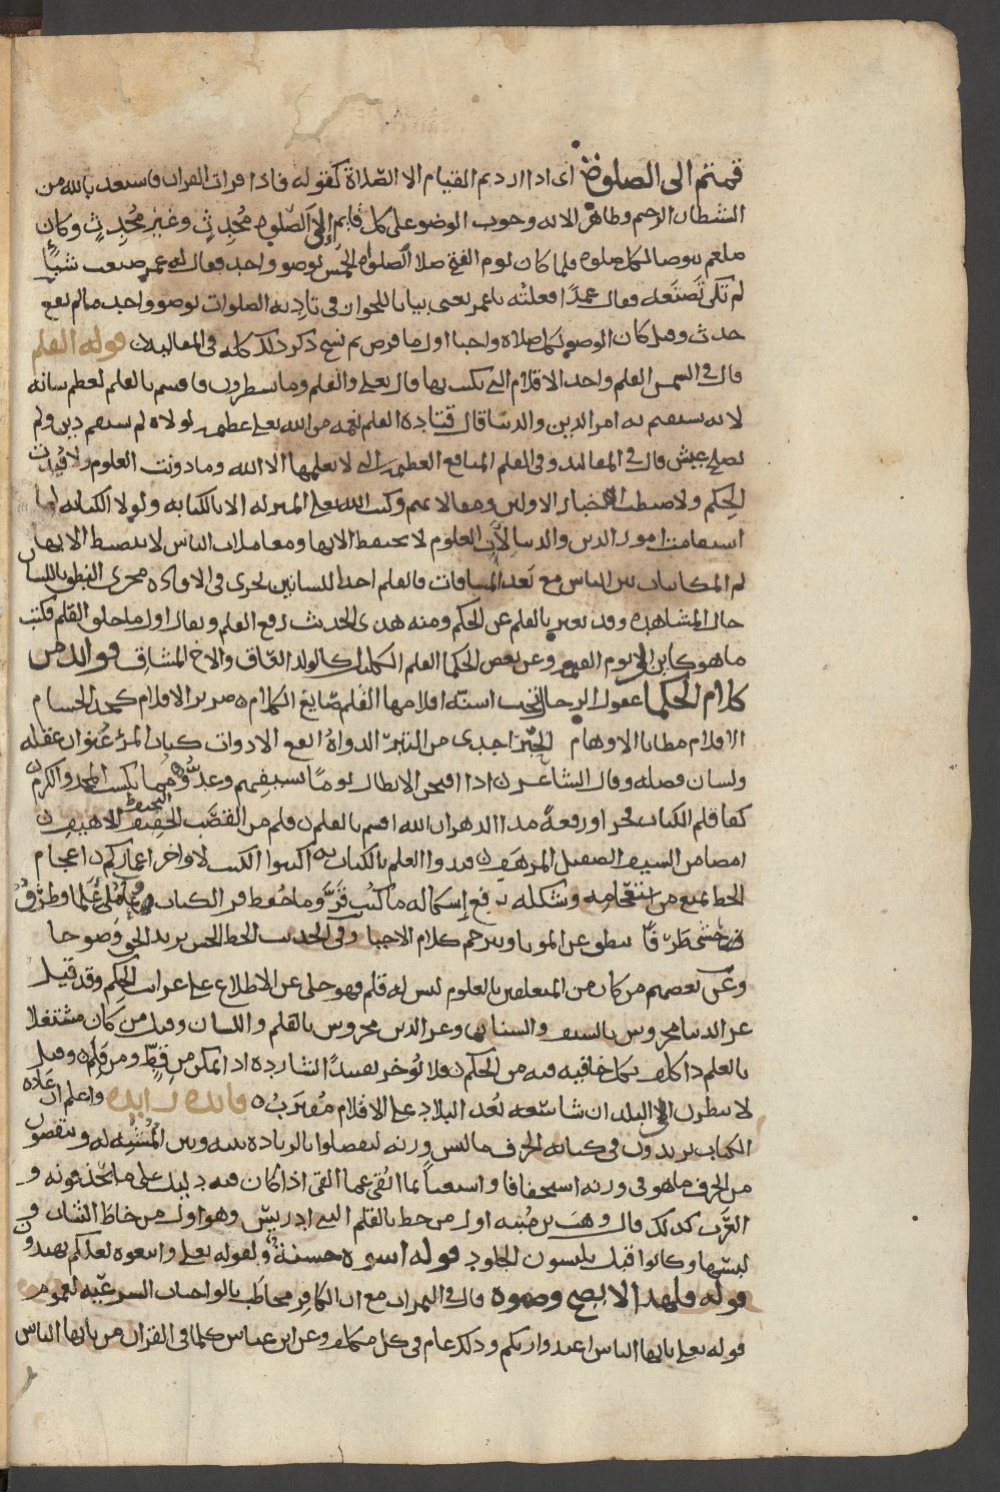 قمتم الى الصلوة اى اذا اردتم القيام الا الصلاة كقوله فاذا قرات القران فاستعذ بالله من
الشيطان الرجيم وظاهر الايه وجوب الوضو على كل قايم إلى الصلوه مُحدِثٍ وغير مُحدِثٍ وكان
صلعم يتوضا لكل صلوه فلما كان يوم الفتح صلا الصلوات الخمس بوضو واحد فقال له عمر صنعت شيًا
لم تكن تصنَعه فقال عمدًا فعلته ياعمر يعنى بيانا للجواز فى تاديه الصلوات بوضو واحد مالم يقع
حدث وقيل كان الوضو لكل صلاه واجبا اول ما فرض ثم نسخ ذكر ذلك كله فى قوله القلم
قال فى القلم واحد الاقلام التى يكتب بها قال تعلى والقلم وما يسطرون فاقسم بالقلم لعظم شانه
لانه يستقيم به امر الدين والدنيا قال قتاده القلم نعمه من الله تعلى عظيمه لولاه لم يستقم دين ولم
يصلح عيش قال فى وفى القلم المنافع العظيمه التى لا يعلمها الا الله وما دونت العلوم ولا قيدت
الحكم ولا ضبطت اخبار الاولين ومقالاتهم وكتب الله تعلى المنزله الا بالكتابه ولولا الكتابه لما
استقامت امور الدين والدنيا لأن العلوم لا تحفظ الا بها ومعاملات الناس لا تنضبط الا بها
ثم المكاتبات بين الناس مع بُعد المسافات فالقلم احد اللسانين يجرى فى الافاده مجرى النطق باللسان
حال المشاهده وقد يعبر بالقلم عن الحكم ومنه هدى الحديث رفع القلم ويقال اول ما خلق القلم فكتب
ما هو كاين الى يوم القيمه وعن بعض الحكما القلم الكليل كالولد العاق والاخ المشاق فوايد من
كلام الحكما عقول الرجال تحت اسنة اقلامها القلم صايغ الكلام صرير الاقلام كحد الحسام
الاقلام مطايا الاوهام الحِبْر اجدى من التبر الدواة انفع الادوات كتاب المرء عُنوان عقله
ولسان فضله وقال الشاعر اذا افتخر الابطال يومًا بسيفهم وعدّوه مما يكسب المجد والكرم
كفا قلم الكتاب فخر اورفعةً مدا الدهر ان الله اقسم بالقلم قلم من القصَب الاهيف
امضا من السيف الصقيل المرهف قيدوا العلم بالكتاب اكتبوا الكتب لاواخر اعماركم اعجام
الخط يمنع من استعجامه وشكله يرفع إشكاله ما كُتب قَرَّ وما حُفظ فر الكتاب
ينطق عن الموتا ويترجم كلام الاحيا وفى الحديث الخط الحسن يزيد الحق وضوحا
وعن بعضهم من كان من المتعلقين بالعلوم ليس له قلم فهو خلى عن الاطلاع على غرايب الحِكم وقد قيل
عز الدنيا محروس بالسيف والسنان وعز الدين محروس بالقلم واللسان وقيل من كان مشتغلا
بالعلم فلا تُؤخر الشارده اذا تمكن من خط ومن قلم وقيل
لا تنظرن الى البلد ان شاسعه بُعد البلاد على الاقلام مقترب فايده زايده واعلم ان عاده
الكتاب يزيدون فى كتابه الحرف ما ليس وزنه ليفصلوا بالزياده بينه وبين المُشبه له وينقصون
من الحرف ما هو فى وزنه استخفافا واستغناً بما ابُقى عما القى اذا كان فيه دليل على ما يحذفونه و
العَرَب كذلك قال وهب بن منبه اول من خط بالقلم النبى ادريس وهو اول من خاط الثياب و
لبسها وكانوا قبل يلبسون الجلود قوله اسوه حسنة ولقوله تعلى واتبعوه لعلكم تهتدون
قوله فلهذا لا يصح وضوه قال فى مع ان الكافر مخاطَب بالواجبات الشرعيّه لعموم
قوله تعلى يايها الناس اعبدوا ربكم وذلك عام فى كل مكلف وعن ابن عباس كلما فى القران من يايها الناس